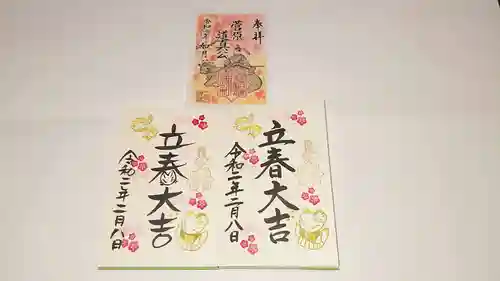 奉拝
菅原
道真公
令和二年二月八日
立春大吉
令和二年二月八日
立春大吉
令和二年二月八日